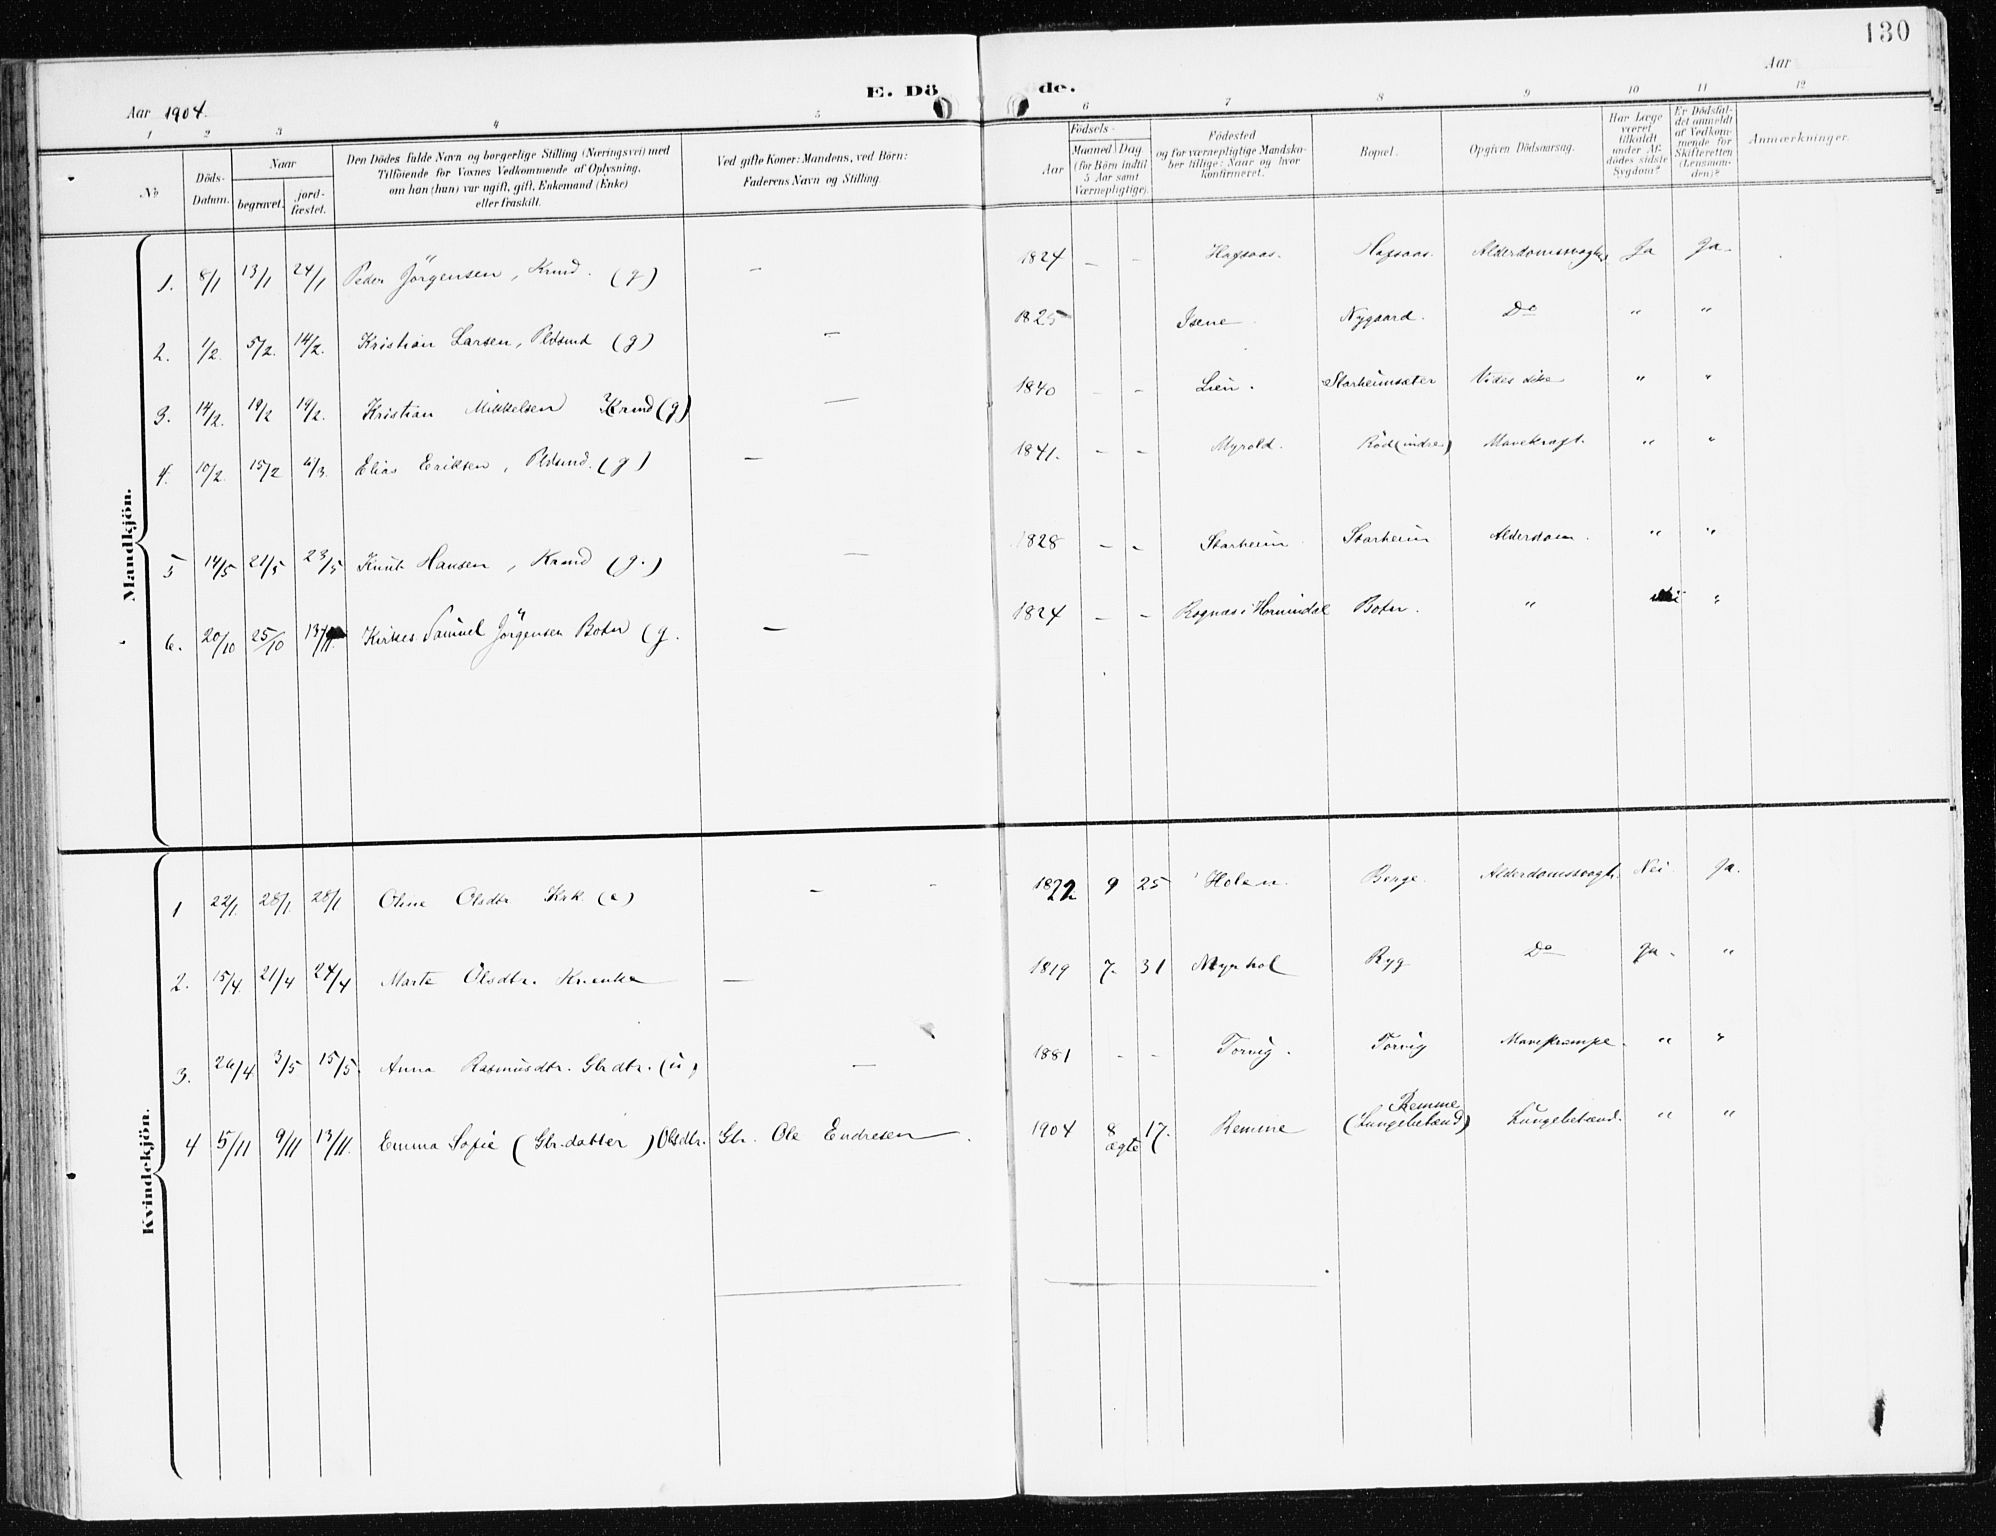 130
Aar 1904.
E. Dö de.
Aar
1 2 3 4 5 6 7 8 9 10 11 12
No
Döds-Datum.
Naar
begravet. jord-fæstet.
Den Dödes fulde Navn og borgerlige Stilling (Næringsvei) med
Tilföiende for Voxnes Vedkommende af Oplysning,
om han (hun) var ugift, gift, Enkemand (Enke)
eller fraskilt.
Ved gifte Koner: Mandens, ved Börn:
Faderens Navn og Stilling.
Födsels-
Aar
Maaned Dag
(for Börn indtil
5 Aar samt
Værnepligtige).
Födested
og for værnepligtige Mandska-
ber tillige: Naar og hvor
konfirmeret.
Bopæl.
Opgiven Dödsaarsag.
Har Læge
været
tilkaldt
under Af-
dödes sidste
Sygdom?
Er Dödsfal-
det anmeldt
af Vedkom-
mende for
Skifteretten
(Lensman-
den)?
Anmærkninger.
Mandkjön.
1. 8/1 13/1 24/1 Peder Jörgensen, Krmd. (g) — 1824 – – Hafsaas. Hafsaas. Ja Ja.
2. 1/2 5/2. 14/2. Kristian Larsen, Pldsmd (g) — 1825 Isene. Nygaard. Do " "
3. 14/2. 19/2 19/2. Kristian Mikkelsen Krmd (g) — 1840 – – Lien. Starheimsæter " "
4. 10/2. 15/2 6/3. Elias Eriksen, Pldsmd. (g) — 1841. – – Myrold. Röd (indre) " "
5 14/5 21/5 23/5 Knut Hansen, Krmd (g.) — 1828 – – Starheim Starheim Alderdom. " "
6. 20/10 25/10 13/11 Kirkes. Samuel Jörgensen Boter (g. — 1824 – – Rognæs i Hornindal Boter. " Nei "
Kvindekjön.
1 22/1. 28/1. 28/1 Oline Olsdtr Krk. (e) — 1822 9 25 Holen. Berge. Alderdomssvagh. Nei Ja.
2. 15/4. 21/4 24/4 Marte Olsdtr. Kr.enke — 1819 7. 31 Myrhol Ryg Do Ja. "
3. 26/4. 3/5 15/5. Anna Rasmusdtr. Gbrdtr. (u) — 1881 – – Torvig. Torvig Mavekrampe. " "
4 5/11 9/11 13/11. Emma Sofie (Gbr.datter) Olsdtr. Gbr. Ole Endresen 1904 8 17. Remme Remme Lungebetænd. " "
ægte (Lungebetænd)